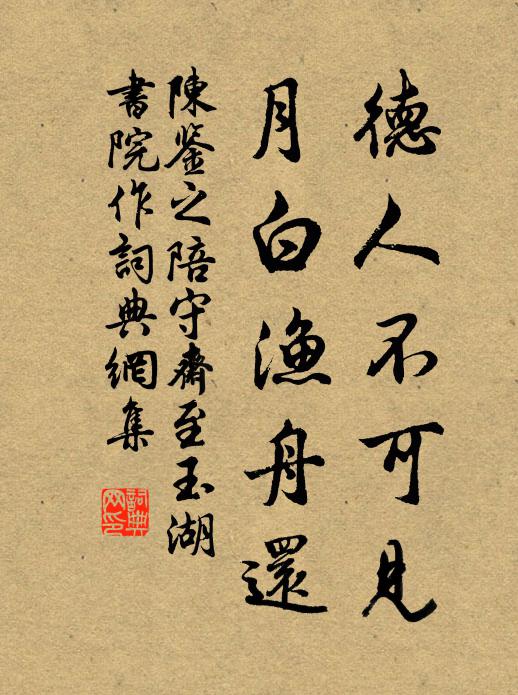 德人不可見
月白漁舟還
陳鑒之陪守齋至玉湖
書院作詞典網集
詞典网印